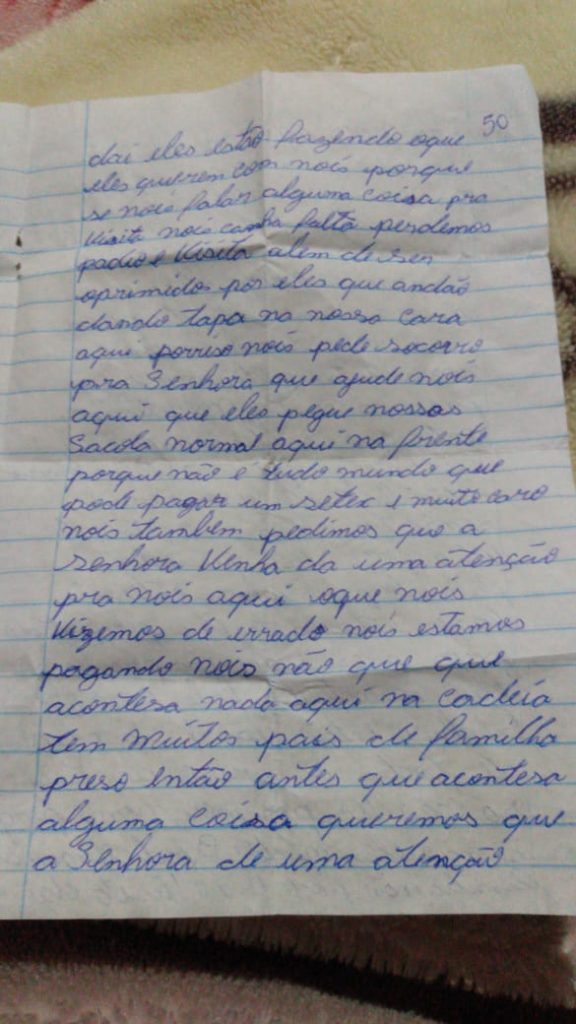 50
dai eles estão fazendo oque
eles querem com nois porque
se nois falar alguma coisa pra
visita nois canha falta perdemos
padio e visita alem de ser
oprimidos por eles que andão
dando tapa na nossa cara
aque porriso nois pede socorro
pra Senhora que ajude nois
aqui que eles pegue nossas
Sacola normal aqui na frente
porque não é tudo mundo que
pode pagar um setex e muito caro
nois tambem pedimos que a
senhora venha da uma atenção
pra nois aqui oque nois
vizemos de errado nois estamos
pagando nois não que que
acontesa nada aqui na cadeia
tem muitos pais de familha
preso então antes que acontesa
alguma coisa queremos que
a Senhora de uma atenção